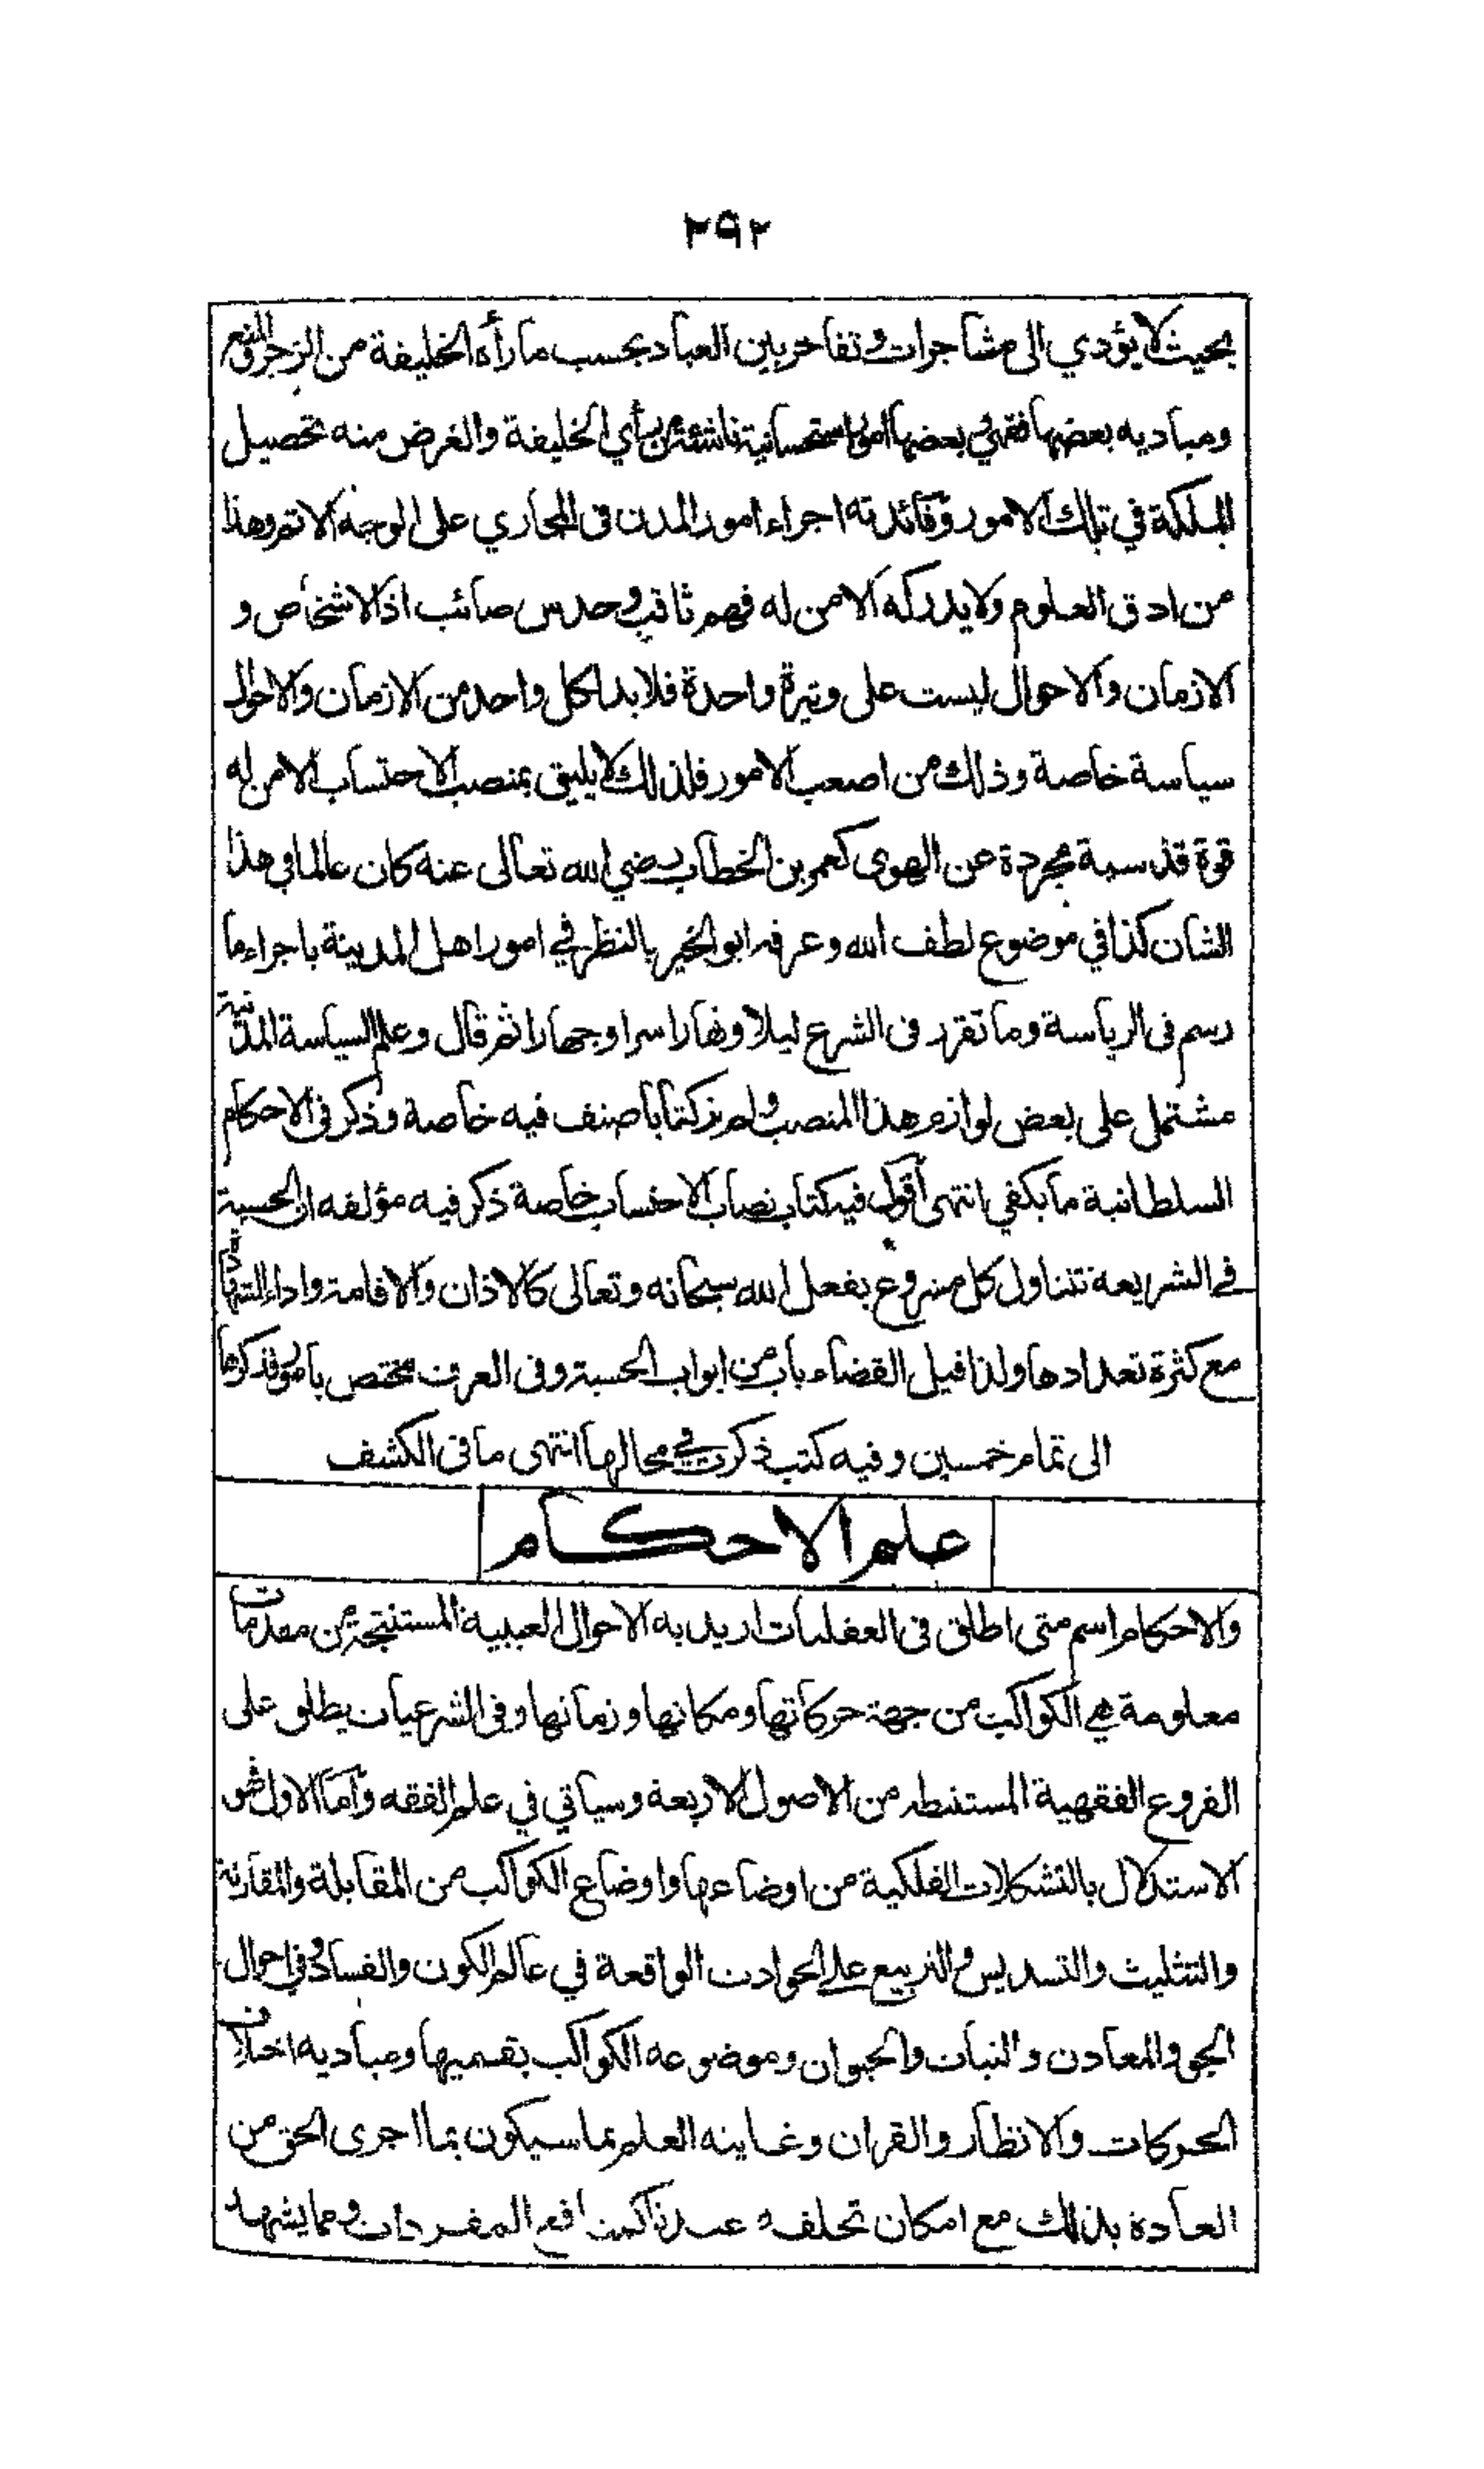 ٢٩٢
بحيث لا يؤدي الى مشاجرات وتفاخر بين العباد بحسب ما رأه الخليفة من الزجر والمنع
ومباديه بعضها فقهي وبعضها امور استحسانية ناشئة من رأي الخليفة والغرض منه تحصيل
الملكة في تلك الامور وفائدته اجراء امور المدن فى المجاري على الوجه الاتم وهذا
من ادق العلوم ولا يدركه الا من له فهم ثاقب وحدس صائب اذ الاشخاص و
الازمان والاحوال ليست على وتيرة واحدة فلا بد لكل واحد من الازمان والاحوال
سياسة خاصة وذلك من اصعب الامور فلذلك لا يليق بمنصب الاحتساب الا من له
قوة قدسية مجردة عن الهوى كعمر بن الخطاب رضي الله تعالى عنه كان عالما في هذا
الشان كذا في موضوع لطف الله وعرفه ابو الخير بالنظر في امور اهل المدينة باجراء ما
رسم فى الرياسة وما تقرر فى الشرع ليلا ونهارا سرا وجهارا ثم قال وعلم السياسة المدنية
مشتمل على بعض لوازم هذا المنصب ولم نر كتابا صنف فيه خاصة وذكر فى الاحكام
السلطانية ما يكفي انتهى أقول فيه كتاب نصاب الاحتساب خاصة ذكر فيه مؤلفه ان الحسبة
في الشريعة تتناول كل مشروع يفعل لله سبحانه وتعالى كالاذان والاقامة واداء الشهادة
مع كثرة تعدادها ولذا قيل القضاء باب من ابواب الحسبة وفى العرف مختص بامور فذكرها
الى تمام خمسين وفيه كتب ذكرت في محالها انتهى ما فى الكشف
علم الاحكام
والاحكام اسم متى اطلق فى العقليات اريد به الاحوال الغيبية المستنتجة من مقدمات
معلومة هي الكواكب من جهة حركاتها ومكانها وزمانها وفى الشرعيات يطلق على
الفروع الفقهية المستنبطة من الاصول الاربعة وسياتي في علم الفقه وأما الاول فهو
الاستدلال بالتشكلات الفلكية من اوضاعها واوضاع الكواكب من المقابلة والمقارنة
والتثليث والتسديس والتربيع على الحوادث الواقعة في عالم الكون والفساد وفي احوال
الجو والمعادن والنبات والحيوان وموضوعه الكواكب بقسميها ومباديه اختلاف
الحركات والانظار والقران وغاينه العلم بما سيكون بما اجرى الحق من
العادة بذلك مع امكان تخلفه عندنا كمنافع المفردات ومما يشهد